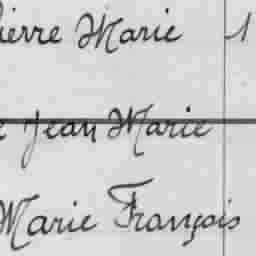 ierre Marie 1
e Jean Marie
Marie François